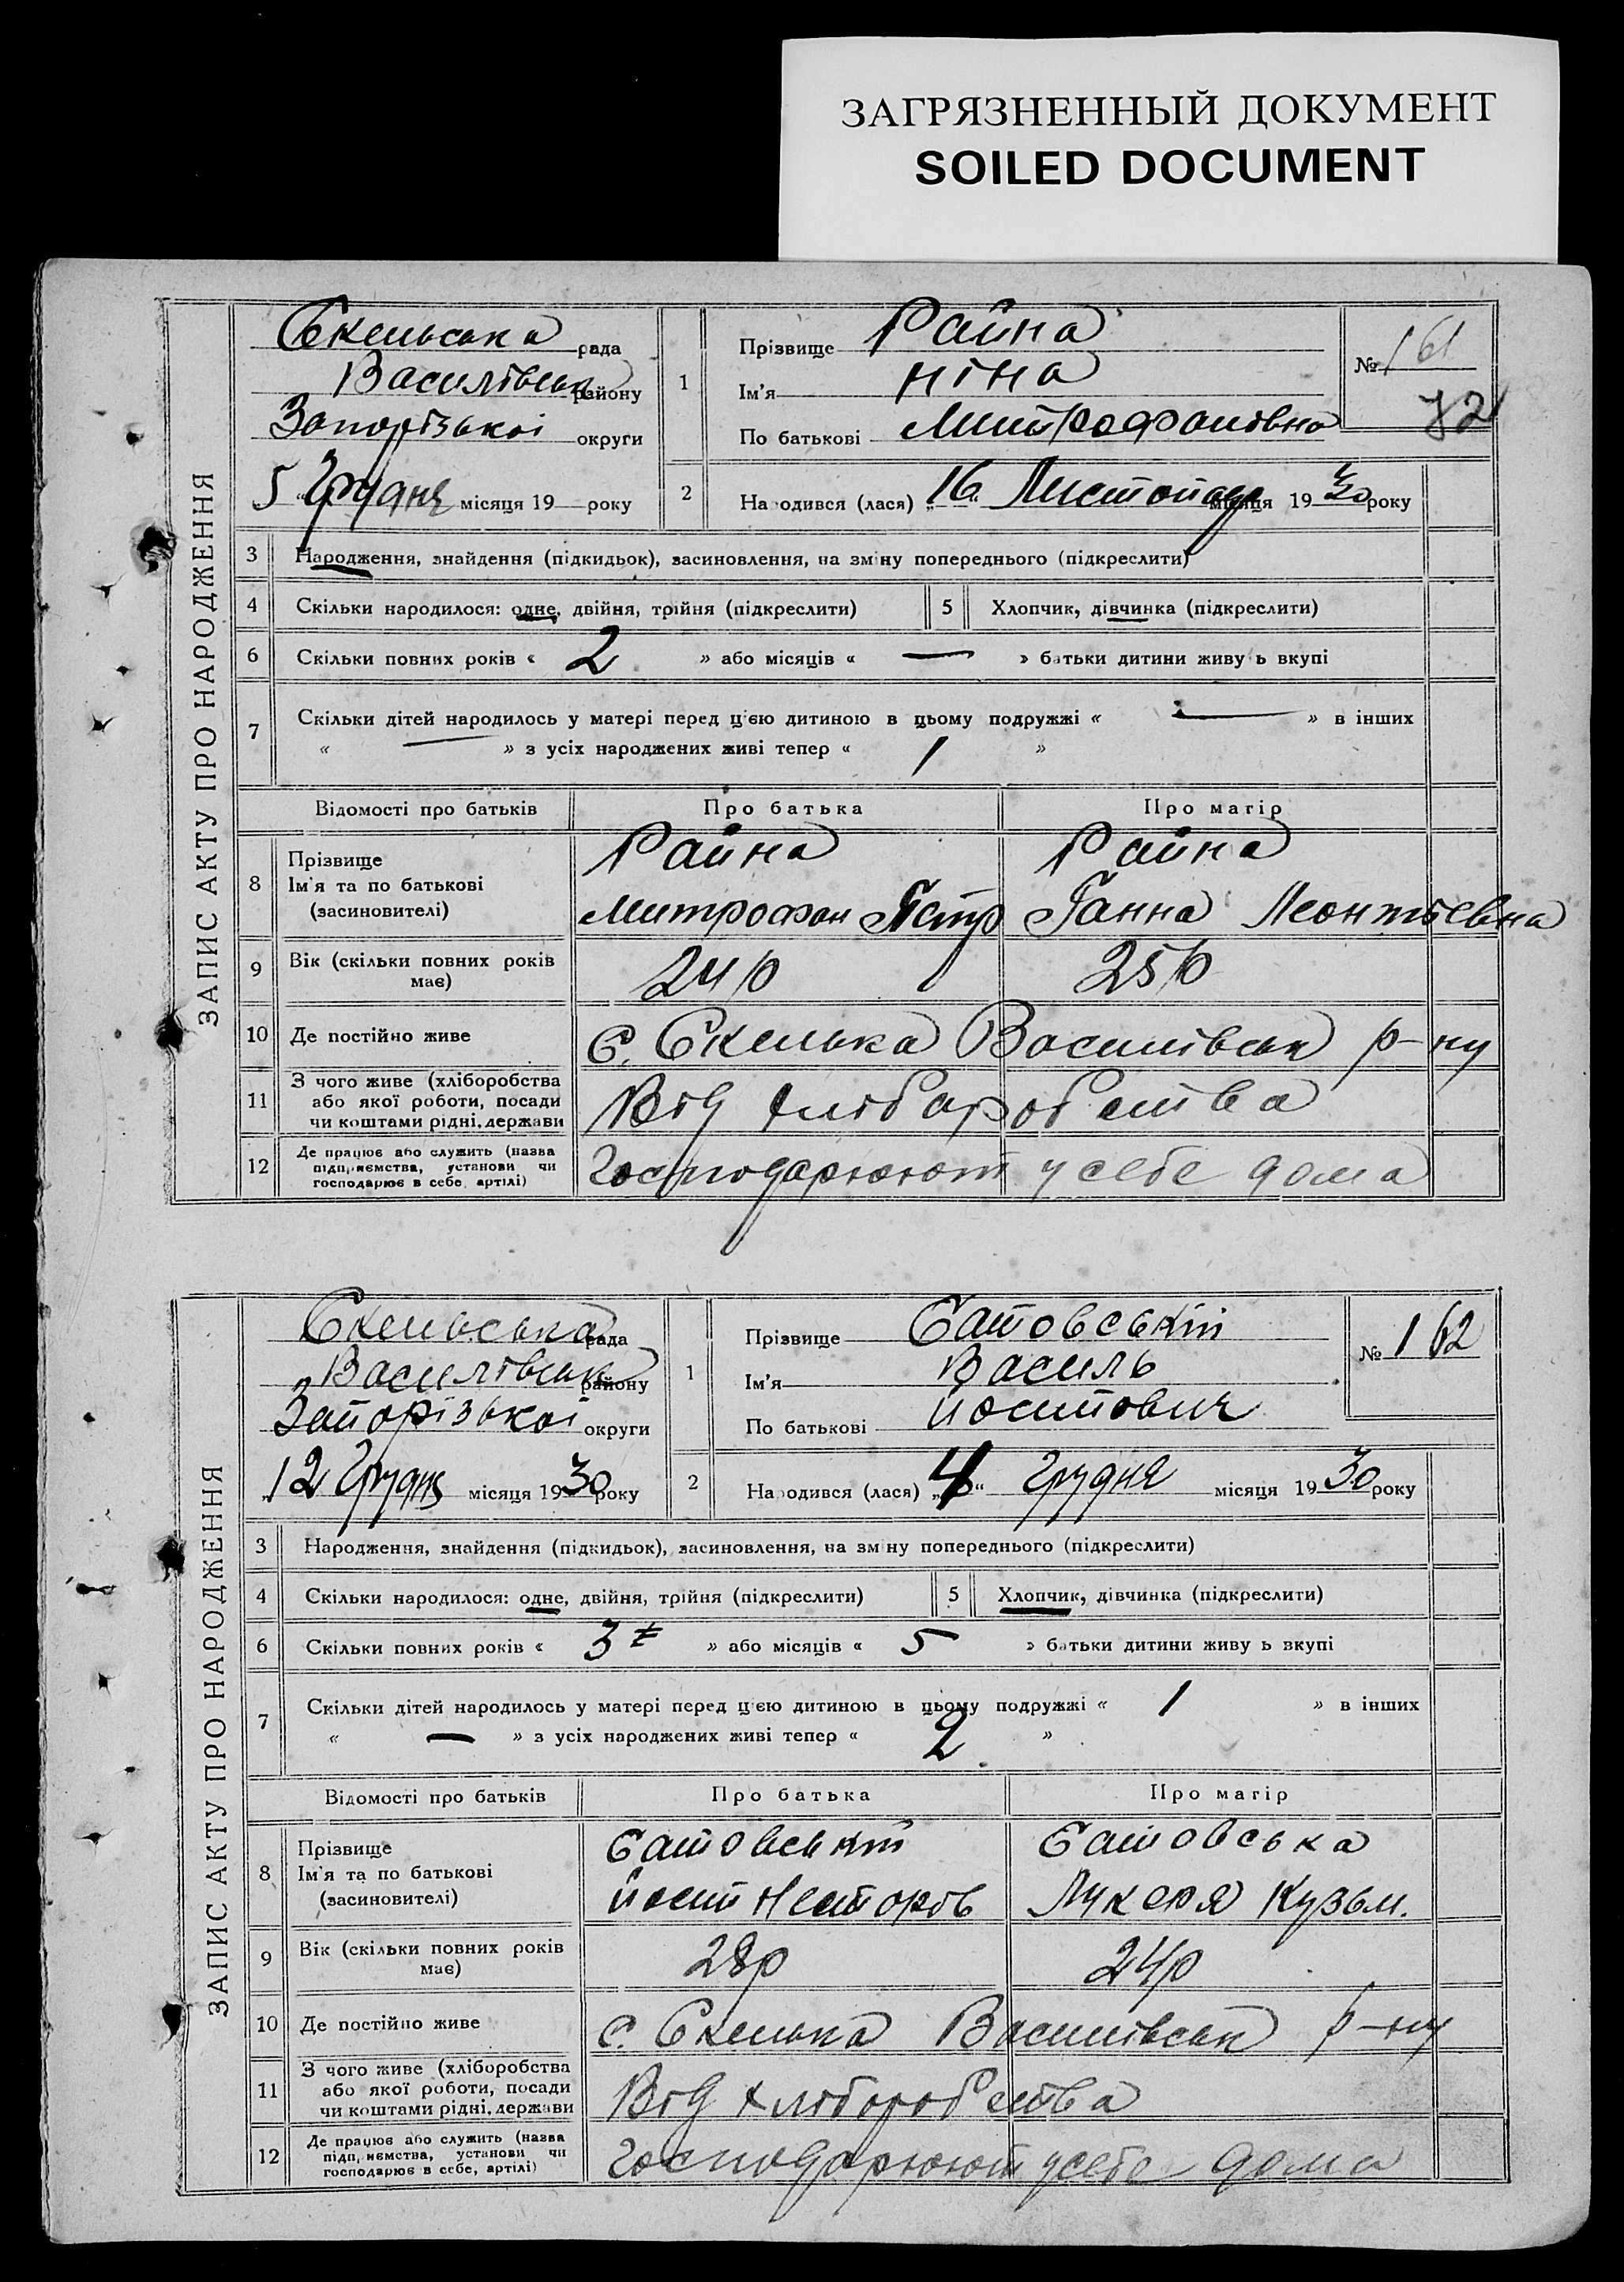 ЗАГРЯЗНЕННЫЙ ДОКУМЕНТ
SOILED DOCUMENT
ЗАПИС АКТУ ПРО НАРОДЖЕННЯ
Скельська рада
Василівськ району
Запорізької округи
5 Грудня місяця 19 року
1
Прізвище Райна
Ім'я Ніна
По батькові Митрофановна
№ 161
72
2
Народився (лася) „16 Листопада місяця 1930 року
3 Народження, знайдення (підкидьок), засиновлення, на зміну попереднього (підкреслити)
4 Скільки народилося: одне, двійня, трійня (підкреслити) 5 Хлопчик, дівчинка (підкреслити)
6 Скільки повних років « 2 » або місяців « — » батьки дитини живуть вкупі
7 Скільки дітей народилось у матері перед цією дитиною в цьому подружжі « — » в інших
« — » з усіх народжених живі тепер « 1 »
Відомості про батьків Про батька Про матір
8 Прізвище Райна Райна
Ім'я та по батькові
(засиновителі) Митрофан Петр Ганна Леонтьевна
9 Вік (скільки повних років має) 24 р 25 р
10 Де постійно живе с. Скелька Василівськ р-ну
11 З чого живе (хліборобства
або якої роботи, посади
чи коштами рідні, держави Від хліборобства
12 Де працює або служить (назва
підприємства, установи чи
господарює в себе, артілі) Господарюют у себе дома
ЗАПИС АКТУ ПРО НАРОДЖЕННЯ
Скельська рада
Василівськ району
Запорізької округи
„12 Грудня місяця 1930 року
1
Прізвище Сатовський
Ім'я Василь
По батькові Йосипович
№ 162
2
Народився (лася) „4“ Грудня місяця 1930 року
3 Народження, знайдення (підкидьок), засиновлення, на зміну попереднього (підкреслити)
4 Скільки народилося: одне, двійня, трійня (підкреслити) 5 Хлопчик, дівчинка (підкреслити)
6 Скільки повних років « 3 » або місяців « 5 » батьки дитини живуть вкупі
7 Скільки дітей народилось у матері перед цією дитиною в цьому подружжі « 1 » в інших
« — » з усіх народжених живі тепер « 2 »
Відомості про батьків Про батька Про матір
8 Прізвище Сатовський Сатовська
Ім'я та по батькові
(засиновителі) Йосип Несторов Лукеря Кузьм.
9 Вік (скільки повних років має) 28р 24р
10 Де постійно живе с. Скелька Василівськ р-ну
11 З чого живе (хліборобства
або якої роботи, посади
чи коштами рідні, держави Від хліборобства
12 Де працює або служить (назва
підприємства, установи чи
господарює в себе, артілі) Господарюют у себе дома